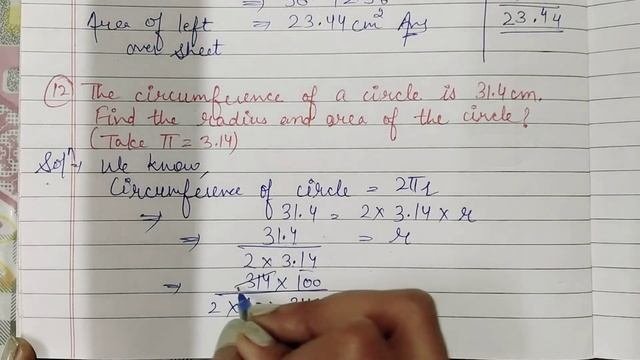 Area of left ⇒ 23.44 cm² Ans
over sheet
23.44
(12) The circumference of a circle is 31.4 cm.
Find the radius and area of the circle?
(Take π = 3.14)
Solⁿ → We know,
Circumference of circle = 2πr
⇒ 31.4 = 2 × 3.14 × r
⇒ 31.4 / 2 × 3.14 = r
⇒ 314 × 100
2 ×